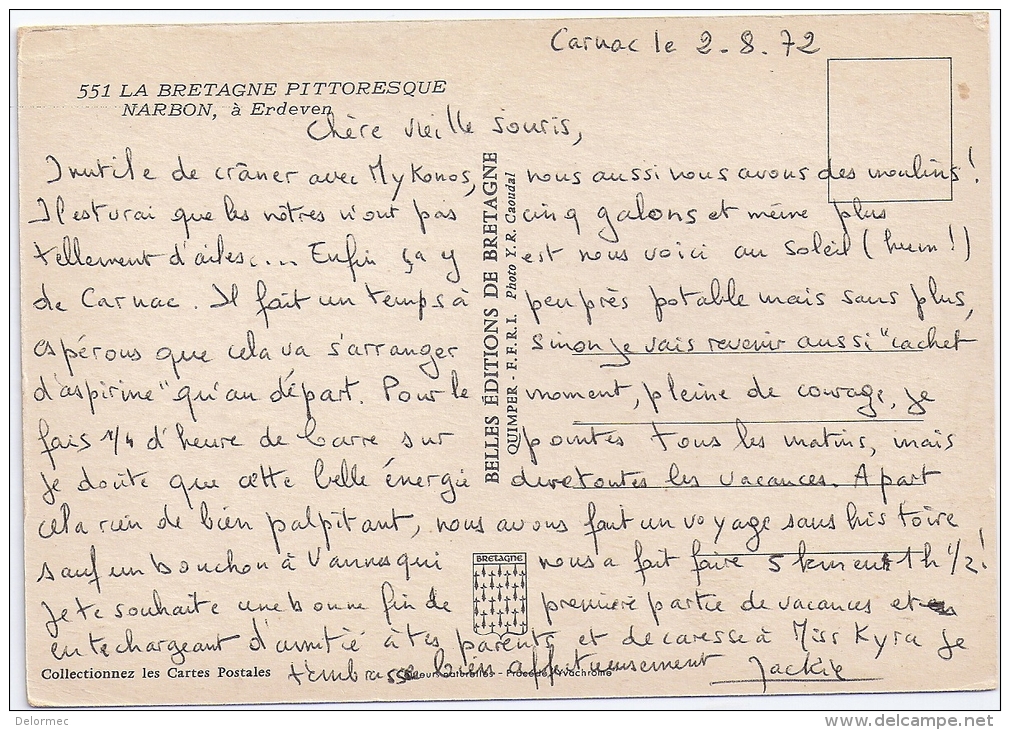 Carnac le 2.8.72
551 LA BRETAGNE PITTORESQUE
NARBON, à Erdeven
Chère vieille souris,
Inutile de crâner avec Mykonos, nous aussi nous avons des moulins!
Il est vrai que les nôtres n'ont pas cinq galons et même plus
tellement d'ailes.... Enfin ça y est nous voici au soleil (hum!)
de Carnac. Il fait un temps à peu près potable mais sans plus,
espérons que cela va s'arranger sinon je vais revenir aussi "cachet
d'aspirine" qu'au départ. Pour le moment, pleine de courage, je
fais 1/4 d'heure de barre sur pointes tous les matins, mais
je doute que cette belle énergie dure toutes les vacances. A part
cela rien de bien palpitant, nous avons fait un voyage sans histoire
sauf un bouchon à Vannes qui nous a fait faire 5 km en 1h 1/2!
je te souhaite une bonne fin de première partie de vacances et
en te chargeant d'amitié à tes parents et de caresse à Miss Kyra je
t'embrasse bien affectueusement Jackie
BELLES ÉDITIONS DE BRETAGNE
QUIMPER - F.F.R.I. Photo Y. R. Caoudal
BRETAGNE
Collectionnez les Cartes Postales
Couleurs naturelles - Procédé Yvachrome
Delormec
www.delcampe.net